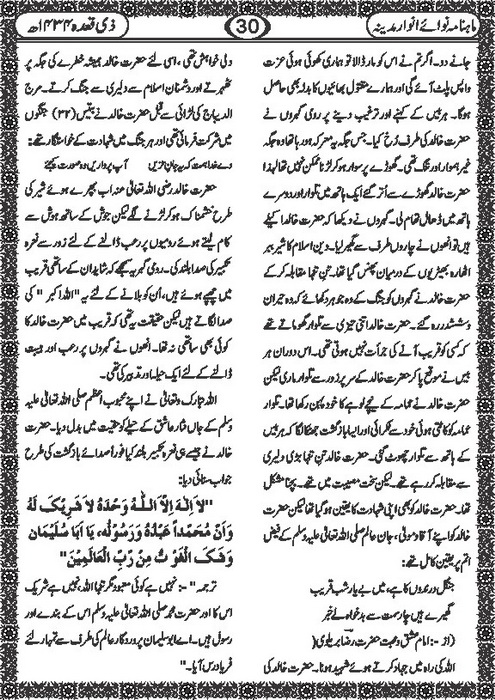 ماہنامہ نوائے انوار مدینہ
30
ذی قعدہ ۱۴۳۴ھ
جانے دو۔ اگر تم نے اس کو مار ڈالا تو ہماری کھوئی ہوئی عزت
واپس پلٹ آئے گی اور ہمارے مقتول بھائیوں کا بدلہ بھی حاصل
ہوگا۔ ہربیس کے کہنے اور ترغیب دینے پر رومی گبروں نے
حضرت خالد کی طرف رُخ کیا۔ جس جگہ یہ معرکہ ہو رہا تھا وہ جگہ
غیر ہموار اور تنگ تھی۔ گھوڑے پر سوار ہو کر لڑنا ممکن نہیں تھا لہٰذا
حضرت خالد گھوڑے سے اُتر گئے ایک ہاتھ میں تلوار اور دوسرے
ہاتھ میں ڈھال تھام لی۔ گبروں نے دیکھا کہ حضرت خالد اکیلے
ہیں تو انھوں نے چاروں طرف سے گھیر لیا۔ دین اسلام کا شیر ببر
اٹھارہ بھیڑیوں کے درمیان پھنس گیا تھا۔ تن تنہا مقابلہ کر کے
حضرت خالد نے گبروں کو جنگ کے وہ جوہر دکھائے کہ وہ حیران
و ششدر رہ گئے۔ حضرت خالد اتنی تیزی سے تلوار گھماتے تھے
کہ کسی کو قریب آنے کی جرأت نہیں ہوتی تھی۔ اس دوران ہر
بیس نے موقع پا کر حضرت خالد کے سر پر زور سے تلوار ماری لیکن
حضرت خالد نے عمامہ کے نیچے لوہے کا خود پہن رکھا تھا۔ تلوار
عمامہ کو کاٹتی ہوئی خود سے ٹکرائی اور ایسا بازگشت جھٹکا لگا کہ ہربیس
کے ہاتھ سے تلوار چھوٹ گئی۔ حضرت خالد تن تنہا بڑی دلیری
سے مقابلہ کر رہے تھے۔ لیکن سخت مصیبت میں تھے۔ بچنا مشکل
تھا۔ حضرت خالد کو بھی اپنی شہادت کا یقین ہو گیا تھا لیکن حضرت
خالد کو اپنے آقا و مولیٰ، جان عالم صلی اللہ تعالیٰ علیہ وسلم کے فیض
اتم پر یقین کامل تھے:
جنگل درندوں کا ہے، میں بے یار شب قریب
گھیرے ہیں چار سمت سے بدخواہ لے خبر
(از:- امام عشق و محبت حضرت رضا بریلوی)
اللہ کی راہ میں جہاد کرتے ہوئے شہید ہونا۔ حضرت خالد کی
دلی خواہش تھی، اسی لئے حضرت خالد ہمیشہ خطرے کی جگہ پر
ٹھہرتے اور دشمنان اسلام سے دلیری سے جنگ کرتے۔ مرج
الدیباج کی لڑائی سے قبل حضرت خالد نے بتیس (۳۲) جنگوں
میں شرکت فرمائی تھی اور ہر جنگ میں شہادت کے خواستگار تھے:
آپ پر واریں وہ صورت کیجئے
حضرت خالد رضی اللہ تعالیٰ عنہ اب بپھرے ہوئے شیر کی
طرح خشمناک ہو کر لڑنے لگے لیکن جوش کے ساتھ ہوش سے
کام لیتے ہوئے رومیوں پر رعب ڈالنے کے لئے زور سے نعرۂ
تکبیر کی صدا بلند کی۔ رومی گبر یہ سمجھے کہ شاید ان کے ساتھی قریب
میں چھپے ہوئے ہیں، اُن کو بلانے کے لئے یہ "اللہ اکبر" کی
صدا لگاتے ہیں لیکن حقیقت یہ تھی کہ قریب میں حضرت خالد کا
کوئی بھی ساتھی نہ تھا۔ انھوں نے گبروں پر رعب اور ہیبت
ڈالنے کے لئے ایک حیلہ اور تدبیر کی تھی۔
اللہ تبارک و تعالیٰ نے اپنے محبوب اعظم صلی اللہ تعالیٰ علیہ
وسلم کے جاں نثار عاشق کے حیلے کو حقیقت میں بدل دیا۔ حضرت
خالد نے جیسے ہی نعرۂ تکبیر بلند کیا فوراً صدائے بازگشت کی طرح
جواب سنائی دیا:
"لَا اِلٰهَ اِلَّا اللّٰهُ وَحْدَهُ لَا شَرِيْكَ لَهُ
وَاَنَّ مُحَمَّداً عَبْدُهُ وَرَسُوْلُهُ، يَا اَبَا سُلَيْمَان
وَفَكَ الْغَوْثُ مِنْ رَبِّ الْعَالَمِيْنَ"
ترجمہ "۔: نہیں ہے کوئی معبود مگر تنہا اللہ، نہیں ہے شریک
اس کا اور حضرت محمد صلی اللہ تعالیٰ علیہ وسلم اس کے بندے اور
رسول ہیں۔ اے ابو سلیمان پروردگار عالم کی طرف سے تمہارے لئے
فریادرس آیا۔"